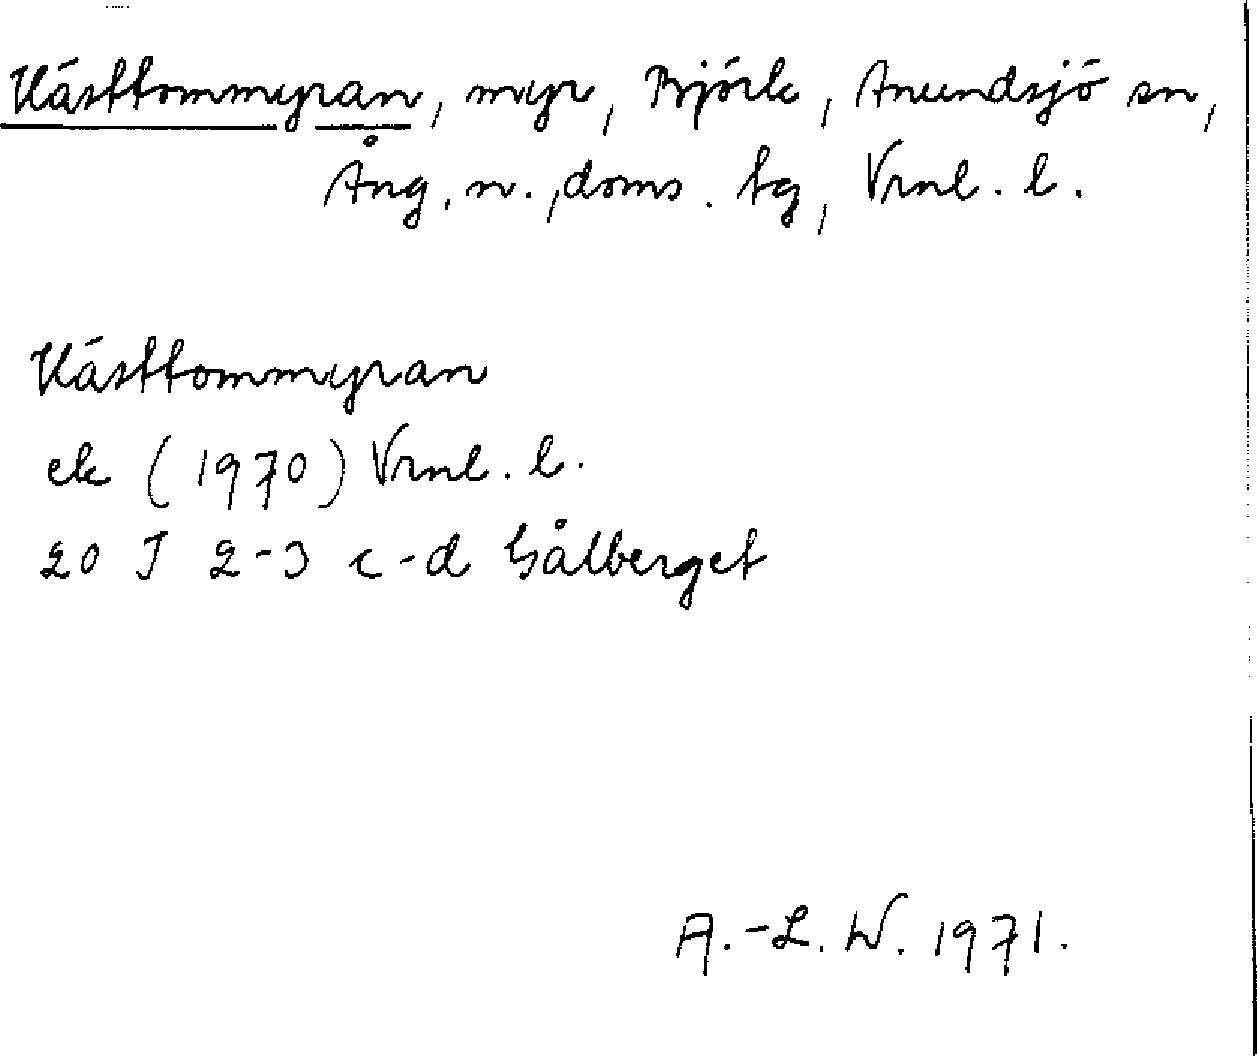 Västtommyran, myr, Björk, Anundsjö sn,
Ång. n., doms. tg, Vrnl. l.
Västtommyran
ek (1970) Vrnl. l.
20 J 2-3 c-d Gålberget
A.-L. W. 1971.